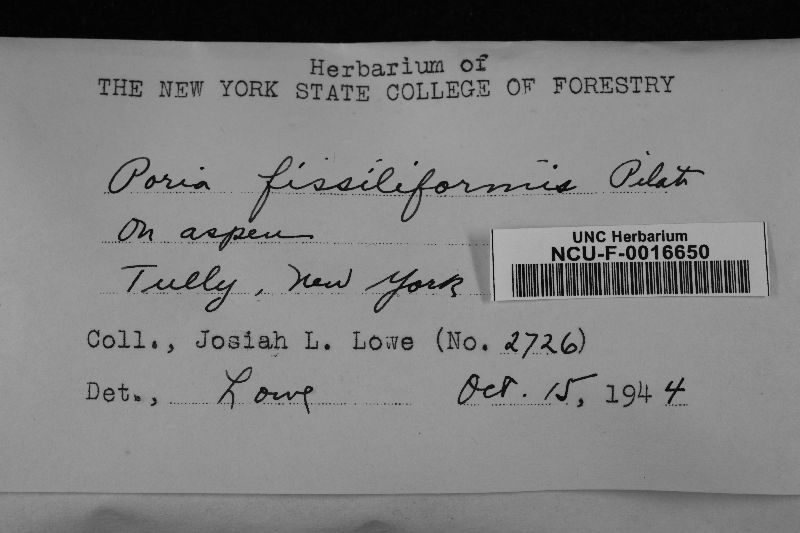 Herbarium of
THE NEW YORK STATE COLLEGE OF FORESTRY
Poria fissiliformis Pilat
On aspen
UNC Herbarium
NCU-F-0016650
Tully, New York
Coll., Josiah L. Lowe (No. 2726)
Det., Lowe Oct. 15, 1944